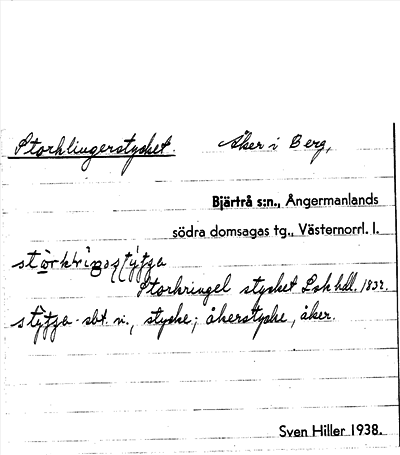 Storklingerstycket. Åker i Berg,
Bjärtrå s:n., Ångermanlands
södra domsagas tg., Västernorrl. l.
Storkringel stycket Lsk hdl. 1832.
sbt. n., stycke; åkerstycke, åker.
Sven Hiller 1938.